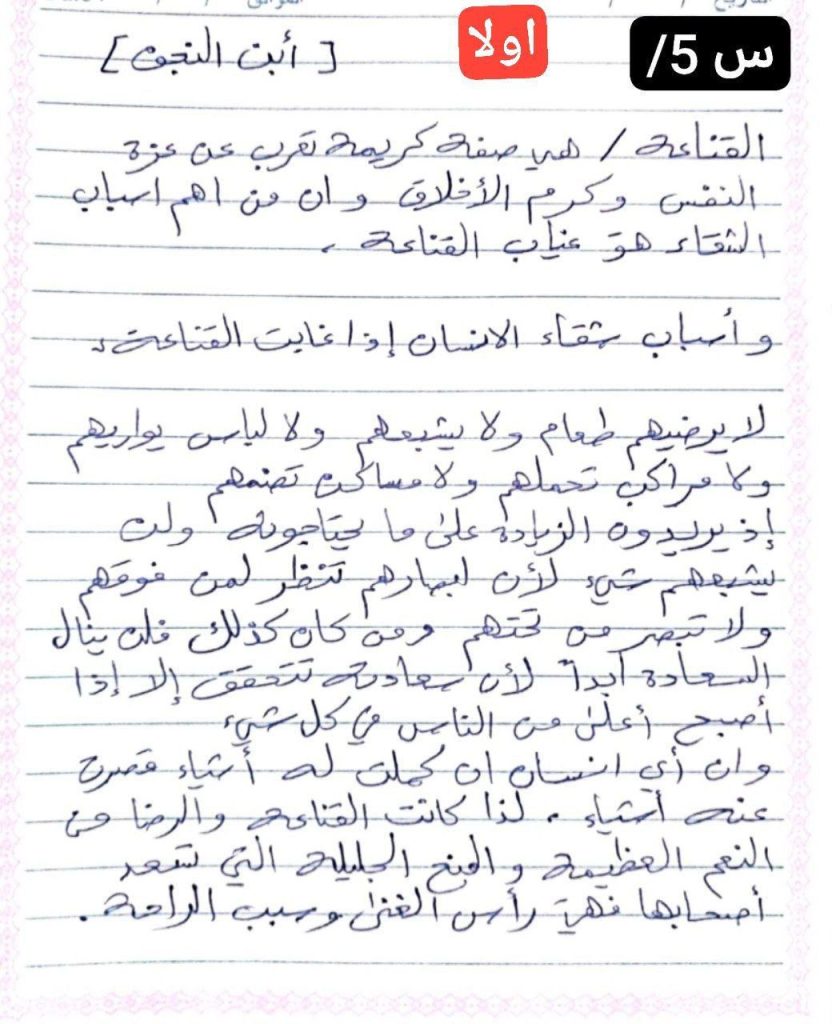 س 5/
اولا
[ أبن النجف ]
القناعة / هي صفة كريمة تعرب عن عزة
النفس وكرم الأخلاق وان من اهم اسباب
الشقاء هو غياب القناعة .
وأسباب شقاء الانسان إذا غابت القناعة:
لا يرضيهم طعام ولا يشبعهم ولا لباس يواريهم
ولا مراكب تحملهم ولا مساكن تضمهم
إذ يريدون الزيادة على ما يحتاجونه ولن
يشبعهم شيء لأن ابصارهم تنظر لمن فوقهم
ولا تبصر من تحتهم ومن كان كذلك فلن ينال
السعادة أبداً لأن سعادته تتحقق إلا إذا
أصبح أعلى من الناس في كل شيء
وان أي انسان ان كملت له أشياء قصرت
عنه أشياء . لذا كانت القناعة والرضا من
النعم العظيمة والمنح الجليلة التي تسعد
أصحابها فهي رأس الغنى وسبب الراحة .